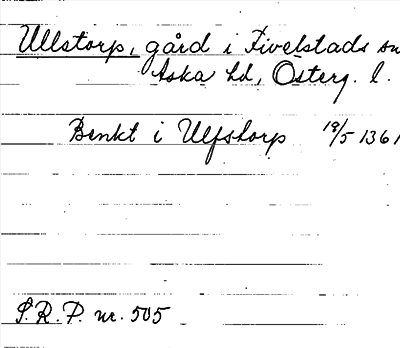 Ullstorp, gård i Fivelstads sn
Aska hd, Österg. l.
Benkt i Ulfstorp 19/5 1361
S.R.P. nr. 505